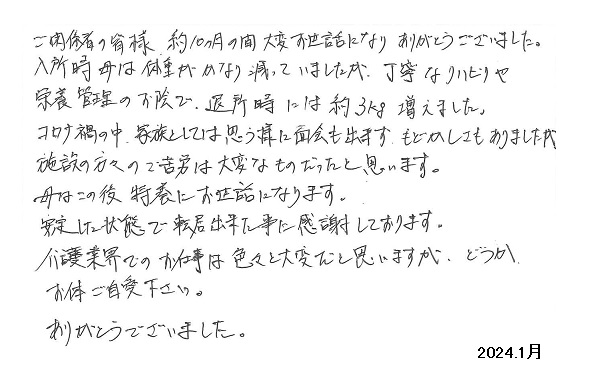 ご関係者の皆様、約10ヵ月の間大変お世話になりありがとうございました。
入所時母は体重がかなり減っていましたが、丁寧なリハビリや
栄養管理のお陰で、退所時には約3kg増えました。
コロナ禍の中、家族としては思う様に面会も出来ず、もどかしくもありましたが
施設の方々のご苦労は大変なものだったと思います。
母はこの後特養にお世話になります。
安定した状態で転居出来た事に感謝しております。
介護業界でのお仕事は色々と大変だと思いますが、どうか
お体ご自愛下さい。
ありがとうございました。
2024.1月